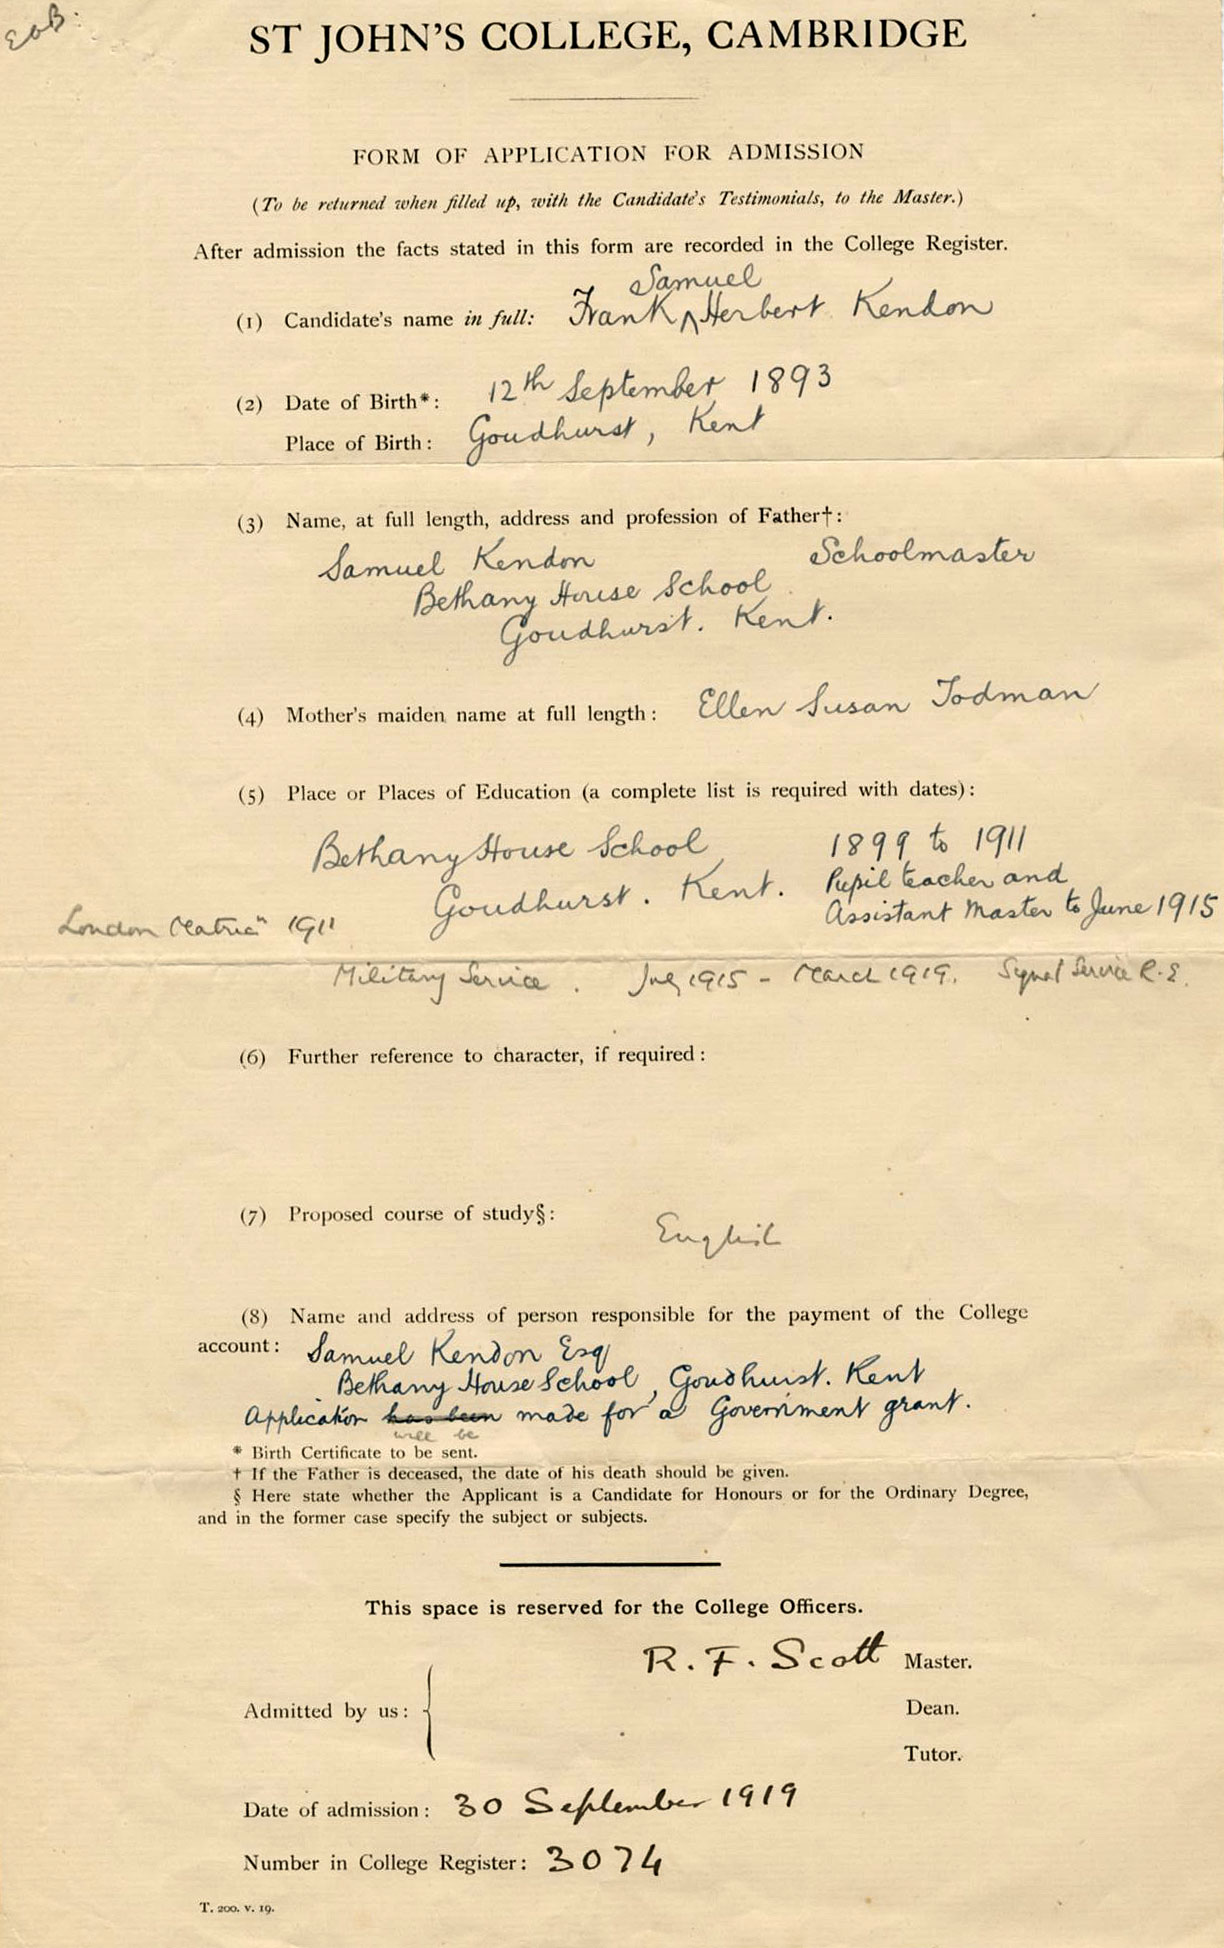 E a B.
ST JOHN'S COLLEGE, CAMBRIDGE
FORM OF APPLICATION FOR ADMISSION
(To be returned when filled up, with the Candidate's Testimonials, to the Master.)
After admission the facts stated in this form are recorded in the College Register.
Samuel
(1) Candidate's name in full: Frank ^ Herbert Kendon
(2) Date of Birth*: 12th September 1893
Place of Birth: Goudhurst, Kent
(3) Name, at full length, address and profession of Father†:
Samuel Kendon Schoolmaster
Bethany House School
Goudhurst. Kent.
(4) Mother's maiden name at full length: Ellen Susan Todman
(5) Place or Places of Education (a complete list is required with dates):
Bethany House School 1899 to 1911
Goudhurst. Kent. Pupil teacher and
Assistant Master to June 1915
London Matricn 1911
Military Service. July 1915 - March 1919. Signal Service R.E.
(6) Further reference to character, if required:
(7) Proposed course of study§: English
(8) Name and address of person responsible for the payment of the College
account: Samuel Kendon Esq
Bethany House School, Goudhurst. Kent
Application has been made for a Government grant.
will be
* Birth Certificate to be sent.
† If the Father is deceased, the date of his death should be given.
§ Here state whether the Applicant is a Candidate for Honours or for the Ordinary Degree,
and in the former case specify the subject or subjects.
This space is reserved for the College Officers.
R. F. Scott Master.
Admitted by us: Dean.
Tutor.
Date of admission: 30 September 1919
Number in College Register: 3074
T. 200. v. 19.